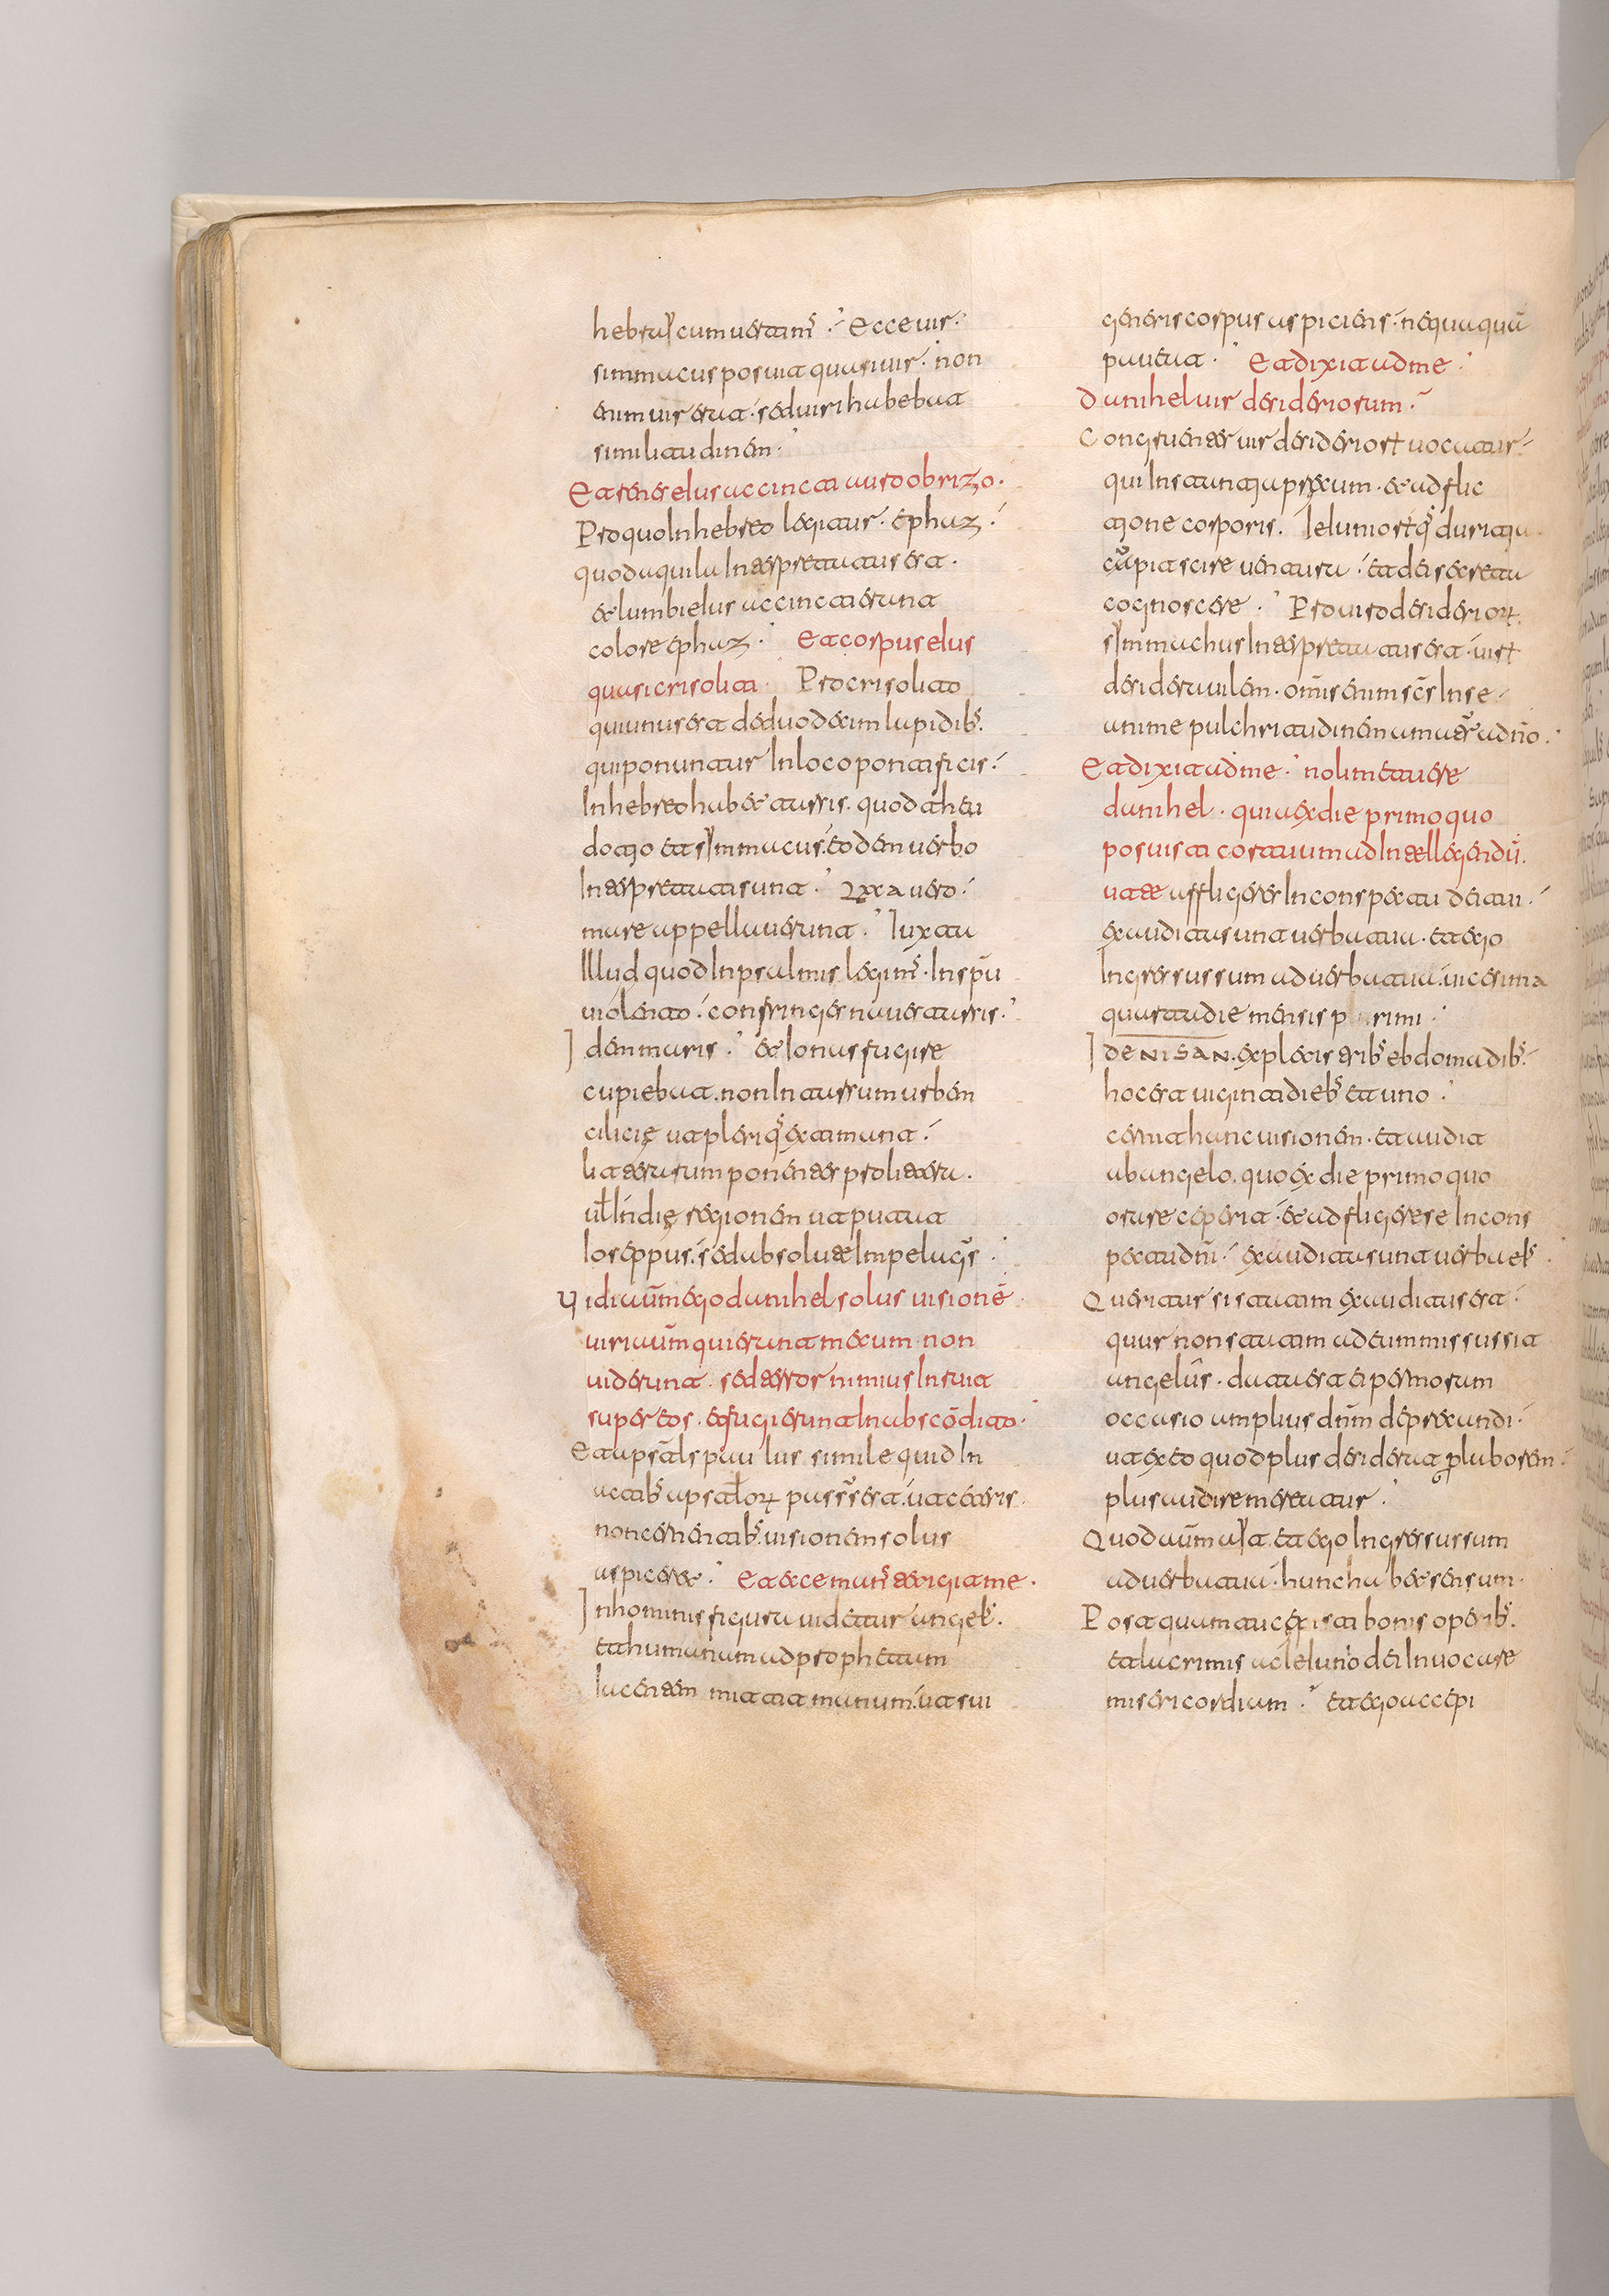 hebraycum uertam̅ . Ecce uir .
simmacus posuit quasi uir . non
enim uir erat . sed uiri habebat
similitudinem .
Et renes eius accincti auro obrizo .
Pro quo In hebreo legitur . ephaz .
quod aquila Interpretatus est .
et lumbi eius accincti erant
colore ephaz . Et corpus eius
quasi crisoliti . Pro crisolito
qui unus est de duodecim lapidibˢ .
qui ponuntur In loco pontificis .
In hebreo habet tarsis . quod theu
dotio et symmacus . eodem uerbo
Interpretati sunt . Lxxa uero .
mare appellauerunt . Iuxta
Illud quod In psalmis legimˢ . In spu̅
uiolento . confringes naues tarsis .
Idem maris . et Ionas fugire
cupiebat . non In tarsum urbem
cilicię ut pleriqˢ extimant .
literarum ponentes pro litera .
ul̵ Indię regionem ut putat
Ioseppus . sed absolute In pelagˢ .
Uidi au̅m ego danihel solus uisione̅ .
uiri au̅m qui erant mecum non
uiderunt . sed terror nimius Inruit
super eos . et fugierunt In abscondito .
Et apsa̅ls paulus simile quid In
actibˢ apsatorꝝ passˢ est . ut ceteris
non cernentibˢ . uisionem solus
aspiceret . Et ecce manˢ tetigit me .
In hominis figura uidetur angelˢ .
et humanam ad prophetam
Iacentem mittit manum . ut sui
generis corpus aspiciens . nequaqua̅
paueat . Et dixit ad me .
Danihel uir desideriorum .
Congruenter uir desideriorꝝ uocatur .
qui Instantia precum . et adflic
tione corporis . Ieluniorꝝqˢ duritia
cu̅pit scire uentura . et dei secreta
cognoscere . Pro uiro desideriorꝝ
symmachus Interpretatus est . uirꝝ
desiderauilem . omis̅ enim sc̅s In se
anime pulchritudinem amatˢ ad̅no .
Et dixit ad me . noli metuere
danihel . quia ex die primo quo
posuisti cor tuum ad Intellegendu̅ .
ut te affligeres In conspectu dei tui .
exaudita sunt uerba tua . et ego
Ingressus sum ad uerba tua . uicesima
quarta die mensis primi .
Ide NISAN . expletis tribˢ ebdomadibˢ .
hoc est uiginti diebˢ et uno .
cernit hanc uisionem . et audit
ab angelo . quo ex die primo quo
orare ceperit . et adfligere se In cons
pectu dn̅i . exaudita sunt uerba elˢ .
Queritur si statim exauditus est .
quur non statim ad eum missus sit
angelus . data est ei per moram
occasio amplius dn̅m deprecandi .
ut ex eo quod plus desiderat plu borem .
plus audire mereatur .
Quod au̅m ayt . et ego Ingressus sum
ad uerba tua . hunc habet sensum .
Postquam tu cepisti bonis operibˢ .
et lacrimis ac Ieluno dei Inuocare
misericordiam . et ego accepi